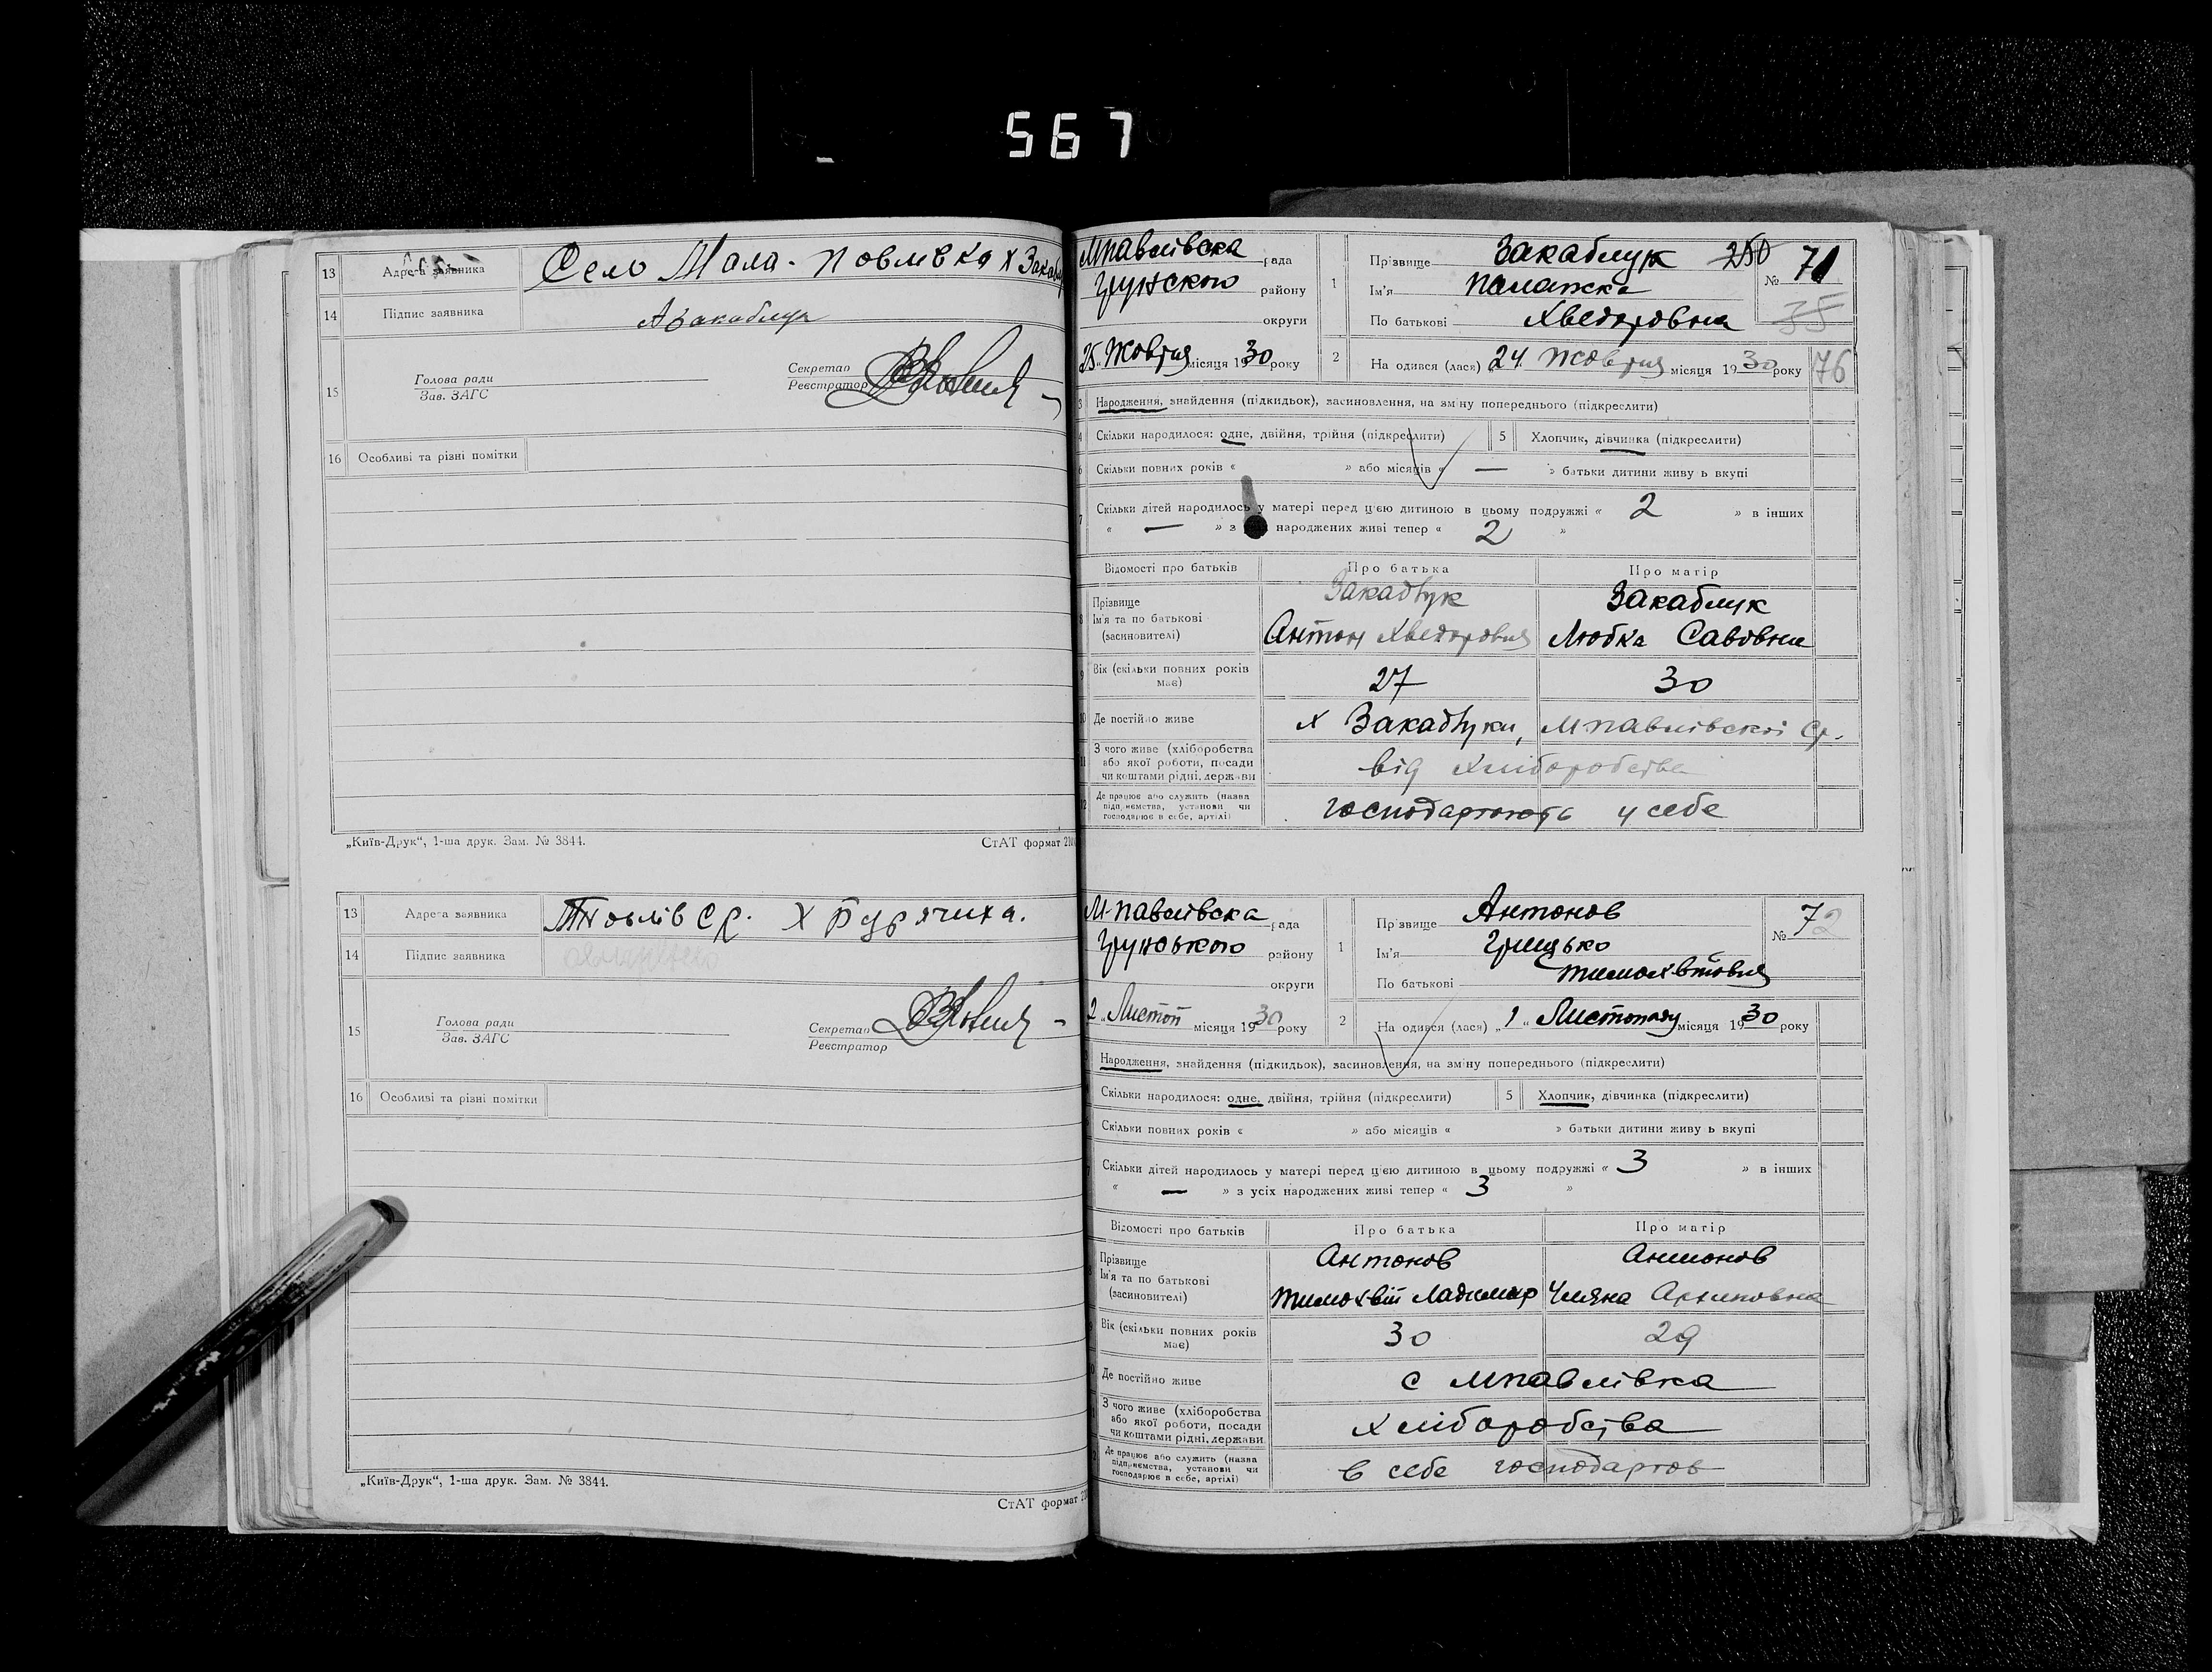 567
13 Адреса заявника Село Мала-Повлівка х Закаб
14 Підпис заявника АЗакаблук
15 Голова ради
Зав. ЗАГС
Секретар
Реєстратор
16 Особливі та різні помітки
„Київ-Друк“, 1-ша друк. Зам. № 3844.
СтАТ формат
13 Адреса заявника х Бурячиха.
14 Підпис заявника
15 Голова ради
Зав. ЗАГС
Секретар
Реєстратор
16 Особливі та різні помітки
„Київ-Друк“, 1-ша друк. Зам. № 3844.
СтАТ формат
Мпавлівска рада
Грунского району
округи
25 Жовтня місяця 1930 року
1 Прізвище Закаблук 250
Ім'я Палажка
По батькові Хведоровна
№ 71
35
2 На одився (лася) „24 Жовтня місяця 1930 року 76
3 Народження, знайдення (підкидьок), засиновлення, на зміну попереднього (підкреслити)
4 Скільки народилося: одне, двійня, трійня (підкреслити) 5 Хлопчик, дівчинка (підкреслити)
6 Скільки повних років « » або місяців « — » батьки дитини живу ь вкупі
7 Скільки дітей народилось у матері перед цією дитиною в цьому подружжі « 2 » в інших
« — » з народжених живі тепер « 2 »
Відомості про батьків Про батька Про матір
8 Прізвище
Ім'я та по батькові
(засиновителі)
Закаблук
Антон Хведорович
Закаблук
Любка Савовна
9 Вік (скільки повних років має) 27 30
10 Де постійно живе х Закаблуки, Мпавлівскої Ср.
11 З чого живе (хліборобства або якої роботи, посади чи коштами рідні, держави від хліборобства
12 Де працює або служить (назва підприємства, установи чи господарює в себе, артілі) господарюють у себе
М-павлівска рада
Грунського району
округи
2 „Листоп місяця 1930 року
1 Прізвище Антонов
Ім'я Грицько
По батькові Тимохвтович
№ 72
2 На одився (лася) „1“ Листопаду місяця 1930 року
Народження, знайдення (підкидьок), засиновлення, на зміну попереднього (підкреслити)
Скільки народилося: одне, двійня, трійня (підкреслити) 5 Хлопчик, дівчинка (підкреслити)
Скільки повних років « » або місяців « » батьки дитини живу ь вкупі
Скільки дітей народилось у матері перед цією дитиною в цьому подружжі « 3 » в інших
« — » з усіх народжених живі тепер « 3 »
Відомості про батьків Про батька Про матір
Прізвище
Ім'я та по батькові
(засиновителі)
Антонов
Тимохвій Ладимир
Антонов
Уляна Архиповна
Вік (скільки повних років має) 30 29
Де постійно живе с Мпавлівка
З чого живе (хліборобства або якої роботи, посади чи коштами рідні, держави хліборобства
Де працює або служить (назва підприємства, установи чи господарює в себе, артілі) в себе господарюв